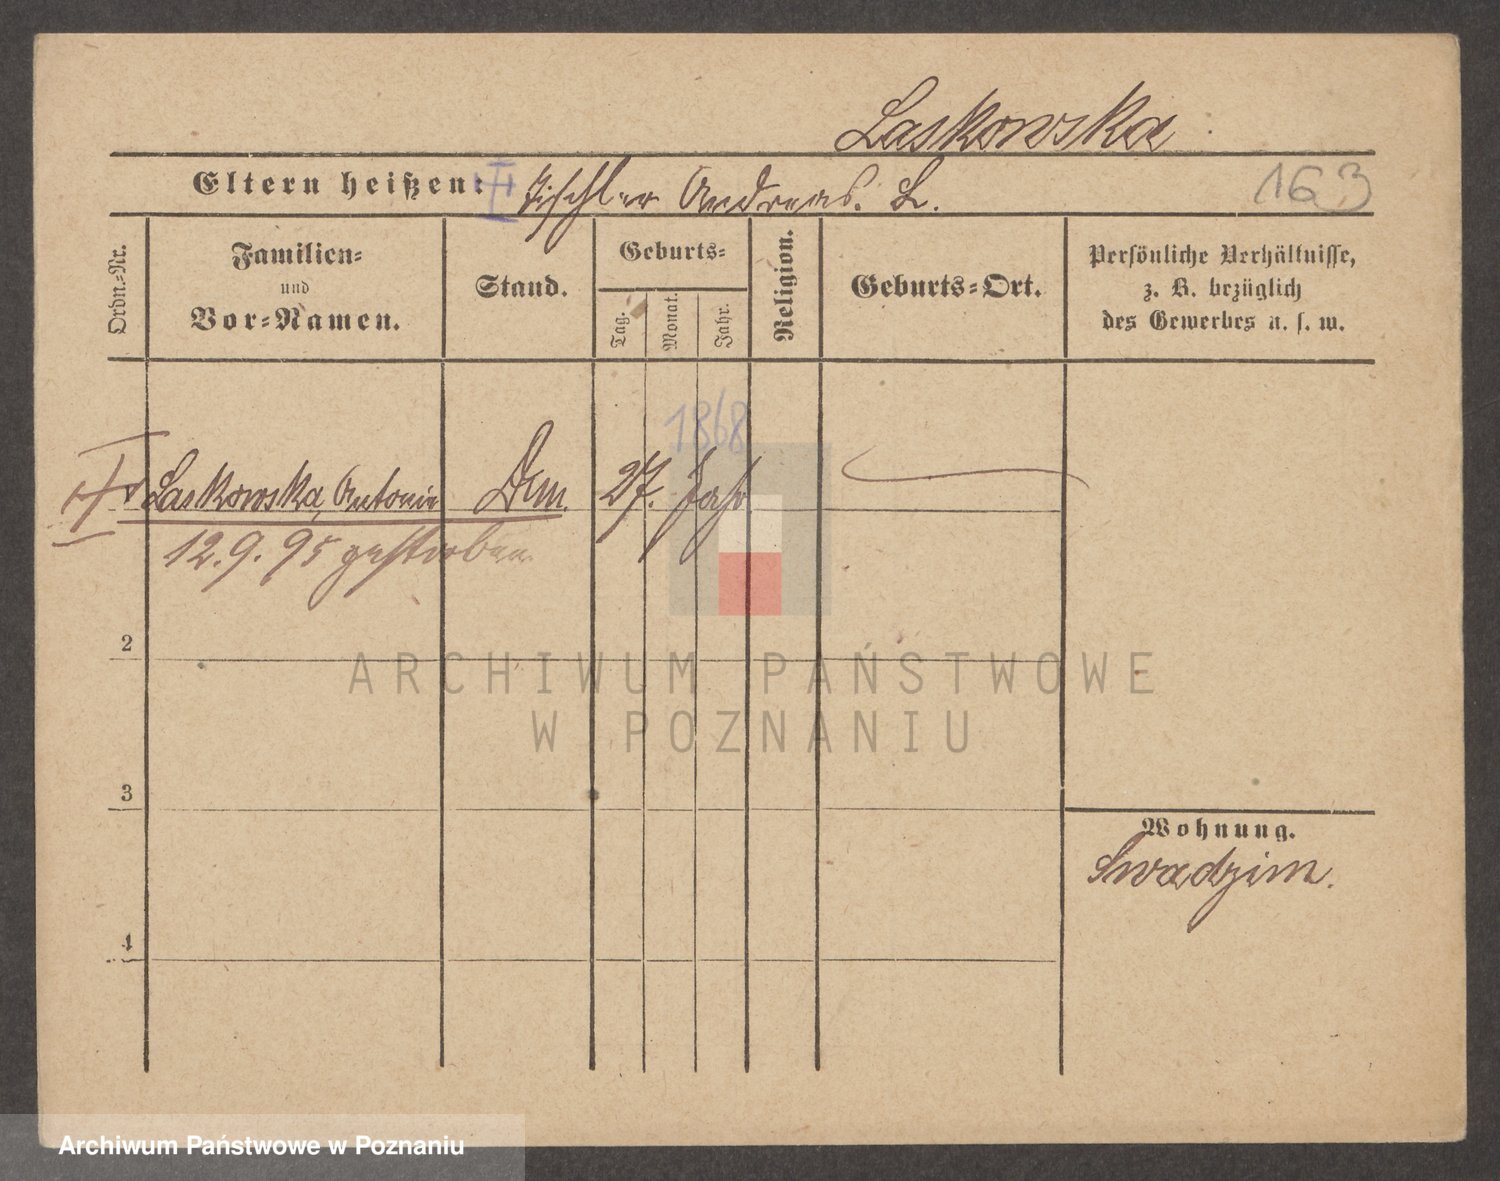 Laskowska.
Eltern heißen: Tischler Andreas. L.
163
Ordn.=Nr.
Familien=
und
Vor=Namen.
Stand.
Geburts=
Tag.
Monat.
Jahr.
Religion.
Geburts=Ort.
Persönliche Verhältnisse,
z. B. bezüglich
des Gewerbes u. s. w.
1868
Laskowska, Antonie
27. Jahr
12.9.95 gestorben
2
3
4
Wohnung.
Swadzim.
ARCHIWUM PAŃSTWOWE
W POZNANIU
Archiwum Państwowe w Poznaniu